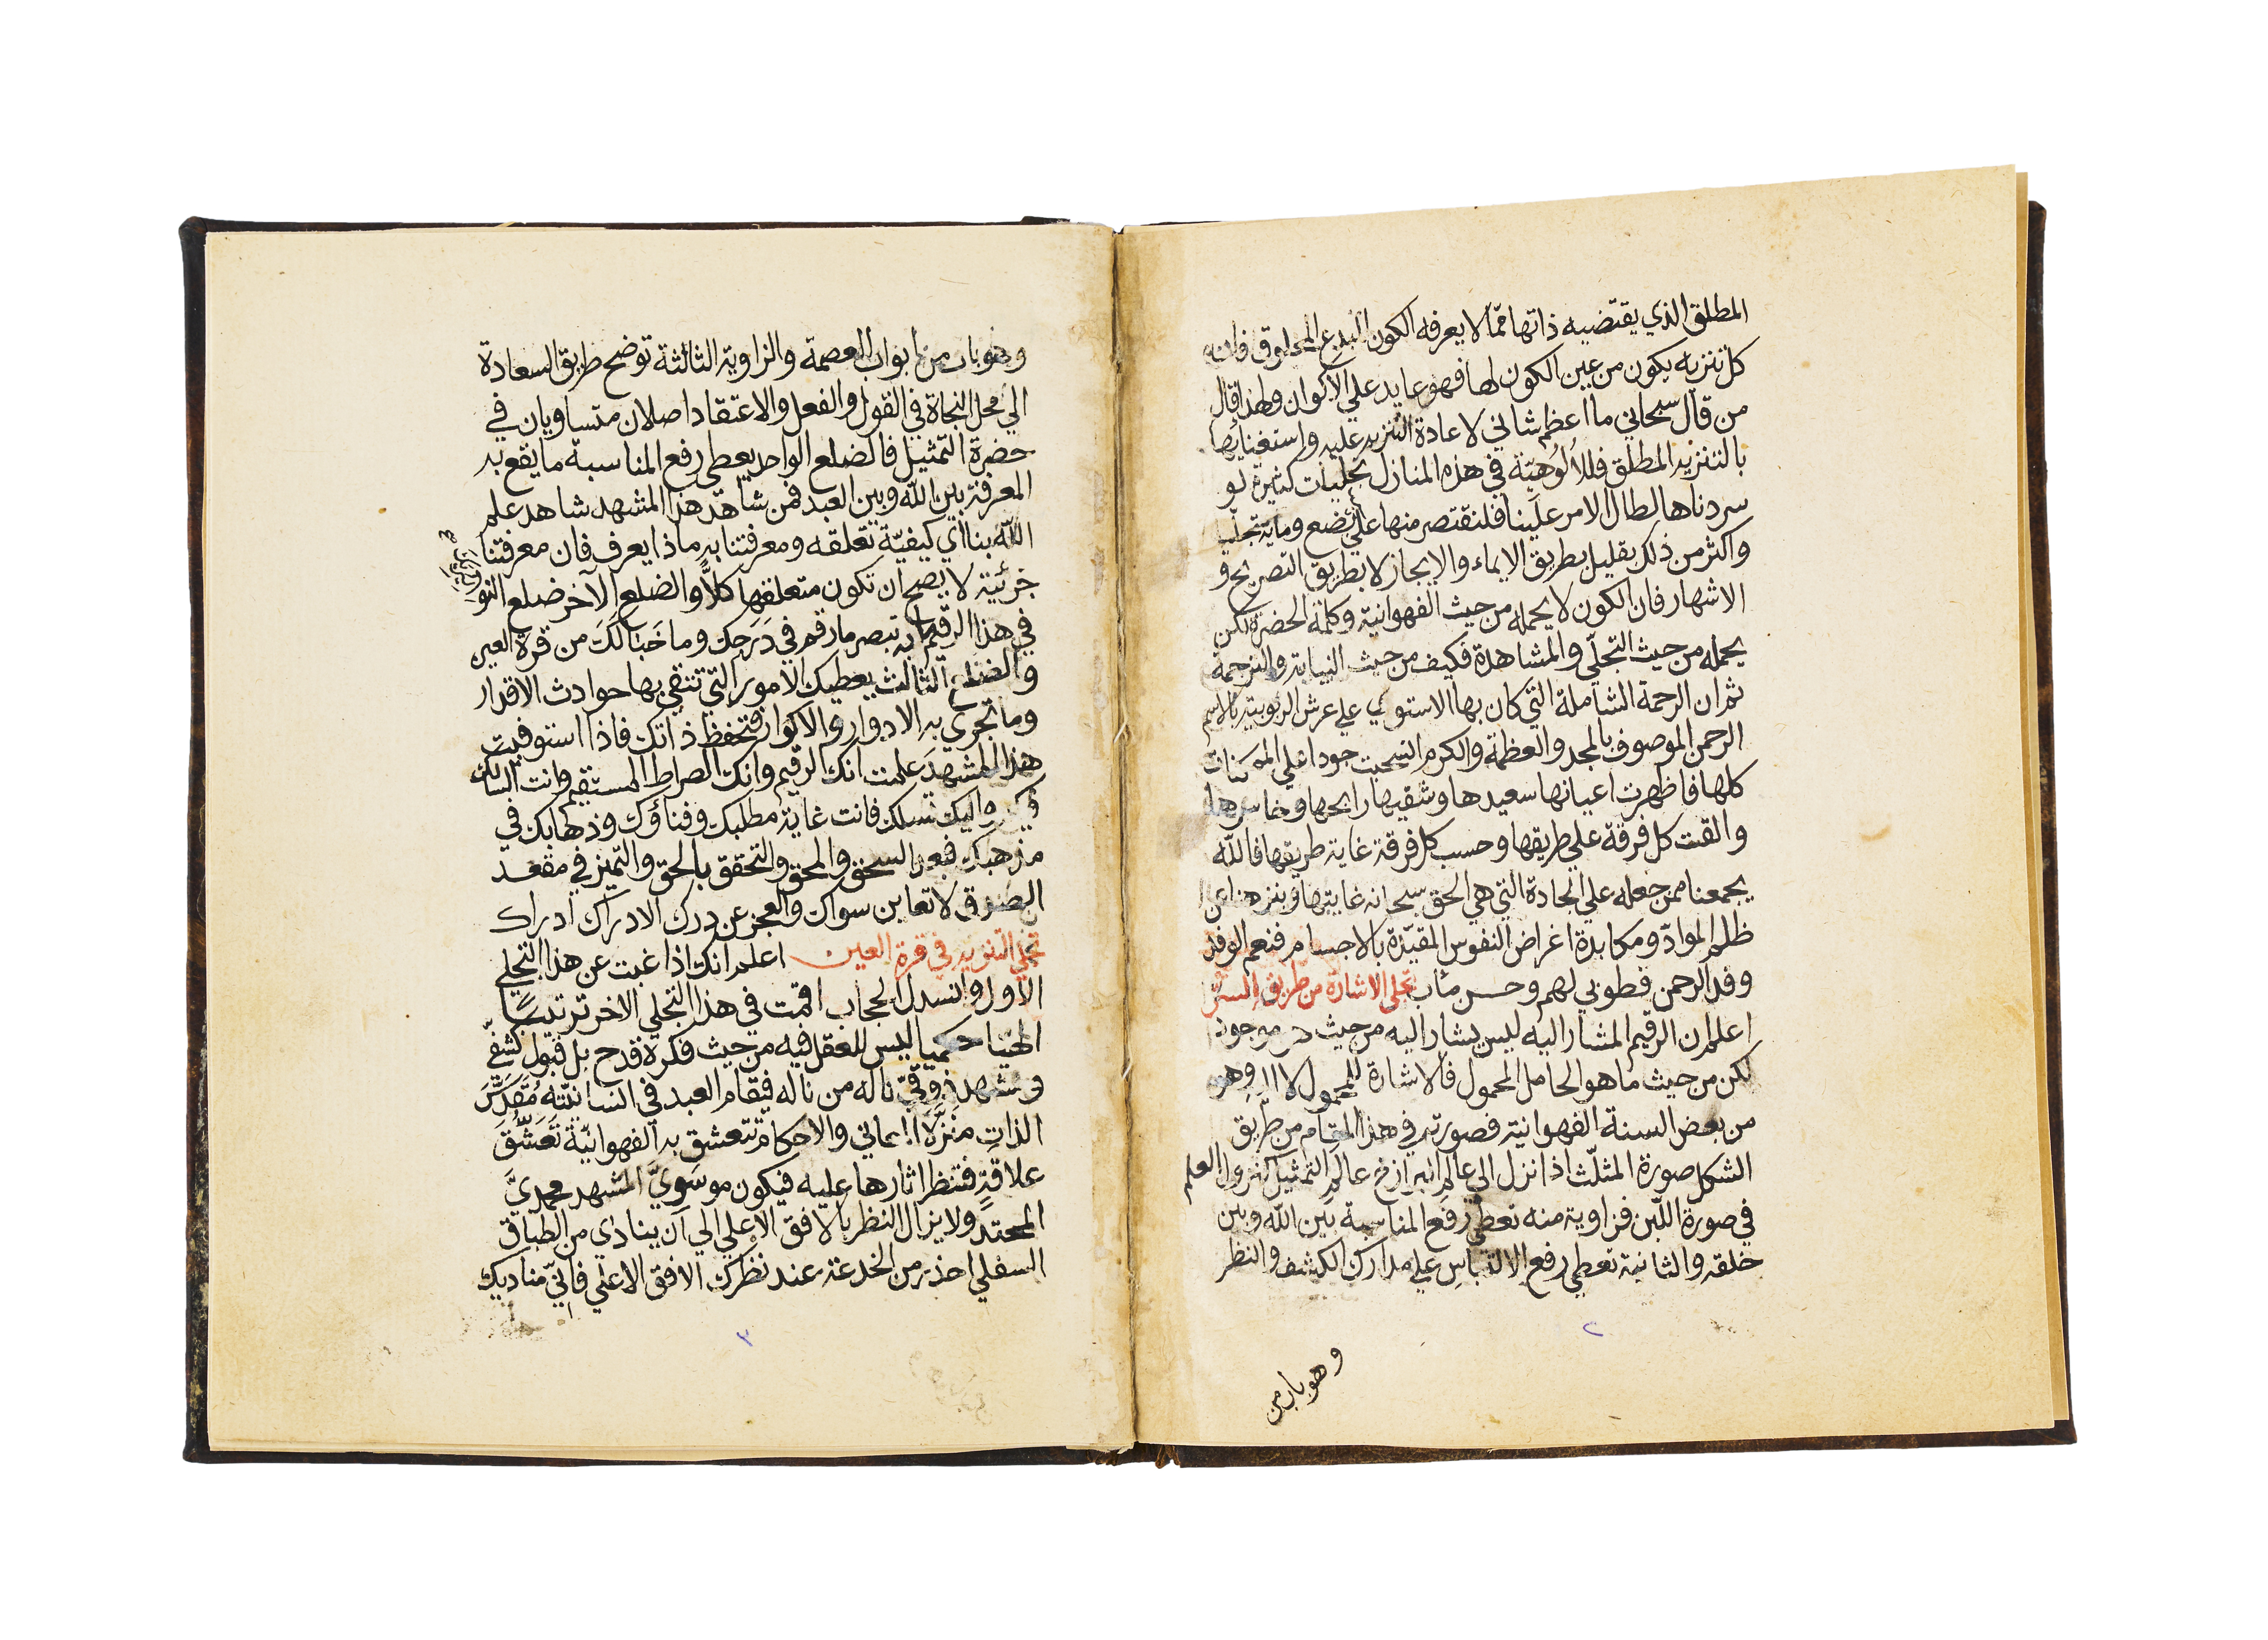 المطلق الذي يقتضيه ذاتها ممّا لا يعرفه الكون المبدع المخلوق فانه
كل تنزيه يكون من عين الكون لها فهو عايد علي الاكوان ولهذا قال
من قال سبحاني ما أعظم شاني لاعادة التنزيه عليه واستغنايها
بالتنزيه المطلق فللألُوهيّة في هذه المنازل تجليات كثيرة لو
سردناها لطال الامر علَينا فلنقتصر منها علي بضع ومايه تجلّي
واكثر من ذلك بقليل بطريق الايماء والايجاز لا بطريق التصريح و
الاشهار فان الكون لا يحمله من حيث الفهوانية وكلمة الحضرة لكن
يحمله من حيث التجلّي والمشاهدة فكيف من حيث النيابة والترجمة
ثم ان الرحمة الشاملة التي كان بها الاستوي علي عرش الربوبية بالاسم
الرحمن الموصوف بالمجد والعظمة والكرم انسحبت جودا علي الممكنات
كلها فاظهرت اعيانها سعيدها وشقيها رابحها وخاسرها
والقت كل فرقة علي طريقها وحسب كل فرقة غاية طريقها فالله
يجمعنا ممن جعله علي الجادة التي هي الحق سبحانه غايتها وينزهنا عن
ظلم الموادّ ومكابدة اغراض النفوس المقيّدة بالاجسام فنعم الوفد
وفد الرحمن فطوبي لهم وحسن مئاب تجلي الاشارة من طريق السرّ
اعلم ان الرقيم المشار اليه ليس يشار اليه من حيث هو موجود
لكن من حيث ما هو الحامل المحمول فالاشارة للمحمول لا وهو
من بعض السنة الفهوانية فصورته في هذا المقام من طريق
الشكل صورة المثلّث اذا نزل الي عالم البرازخ عالم التمثيل كنزول العلم
في صورة اللّبن فزاوية منه تعطي رفع المناسبة بين الله وبين
خلقه والثانية تعطي رفع الالتباس علي مدارك الكشف والنظر
٢
وهو باب من
وهو باب من ابواب العصمة والزاوية الثالثة توضح طريق السعادة
الي محل النجاة في القول والفعل والاعتقاد اصلان متساويان في
حضرة التمثيل فالضلع الواحد يعطي رفع المناسبة ما يقع به
المعرفة بين الله وبين العبد فمن شاهد هذا المشهد شاهد علم
اللّه بنا اي كيفيّة تعلقه ومعرفتنا به ماذا يعرف فان معرفتنا
جزئية لا يصح ان تكون متعلقها كلاًّ والضلع الآخر ضلع النور
في هذا الرقيم به تبصر ما رقم في دَرَجك وما خبّا لَكَ من قرة العين
والضلع الثالث يعطيك الامور التي تتقي بها حوادث الاقدار
وما تجري به الادوار والاكوار فتحفظ ذاتك فاذا استوفيت
هذا المشهد علمت انك الرقيم وانك الصراط المستقيم وانت السالك
واليك تسلك فانت غاية مطلبك وفناؤك وذهابك في
مذهبك فبعد السحق والمحق والتحقق بالحق والتميز في مقعد
الصدق لا تعاين سواك والعجز عن درك الادراك ادراك
تجلي التنزيه في قرة العين اعلم انك اذا غبت عن هذا التجلي
الاول وانسدل الحجاب اقمت في هذا التجلي الاخر ترتيباً
الهيا حكميا ليس للعقل فيه من حيث فكره قدح بل قبول كشفيّ
ومشهد ذوقيّ ناله من ناله فيقام العبد في انسانيّته مُقدَّسَ
الذات منزّه المعاني والاحكام تتعشق به الفهوانيّة تَعَشُّقَ
علاقةٍ فتظهر اثارها عليه فيكون موسَويَّ المشهد محمديَّ
المحتد ولا يزال النظر بالافق الاعلي الي ان ينادي من الطباق
السفلي احذر من الخدعة عند نظرك الافق الاعلي فانّي مناديك
٣